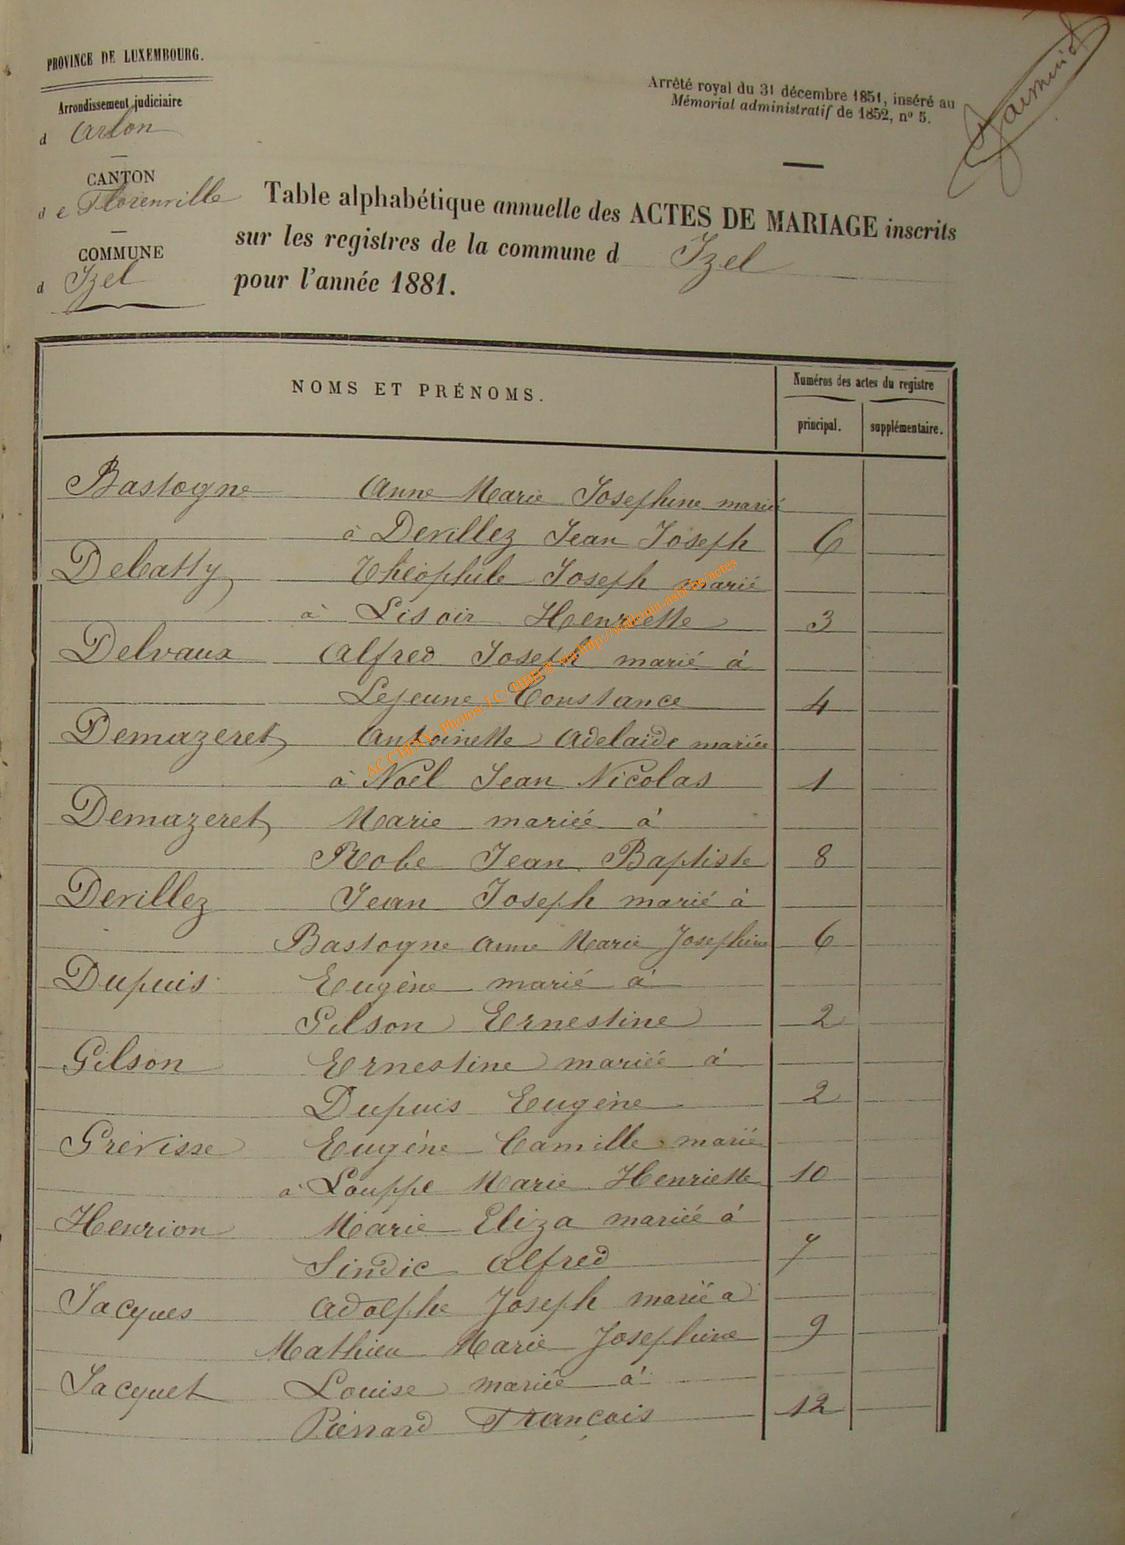 PROVINCE DE LUXEMBOURG.
Arrondissement judiciaire
d Arlon
CANTON
de Florenville
COMMUNE
d Izel
Arrêté royal du 31 décembre 1851, inséré au
Mémorial administratif de 1852, n° 5.
Table alphabétique annuelle des ACTES DE MARIAGE inscrits
sur les registres de la commune d Izel
pour l'année 1881.
NOMS ET PRÉNOMS.
Numéros des actes du registre
principal. supplémentaire.
Bastogne Anne Marie Josephine marié
à Devillez Jean Joseph 6
Debatty Théophile Joseph marié
à Lisoir Henriette 3
Delvaux Alfred Joseph marié à
Lejeune Constance 4
Demazeret Antoinette Adelaide mariée
à Noël Jean Nicolas 1
Demazeret Marie mariée à
Robe Jean Baptiste 8
Devillez Jean Joseph marié à
Bastogne Anne Marie Josephine 6
Dupuis Eugène marié à
Gilson Ernestine 2
Gilson Ernestine mariée à
Dupuis Eugène 2
Grévisse Eugène Camille marié
à Louppe Marie Henriette 10
Henrion Marie Eliza mariée à
Sindic Alfred 7
Jacques Adolphe Joseph marié à
Mathieu Marie Josephine 9
Jacquet Louise mariée à
Pierrard François 12